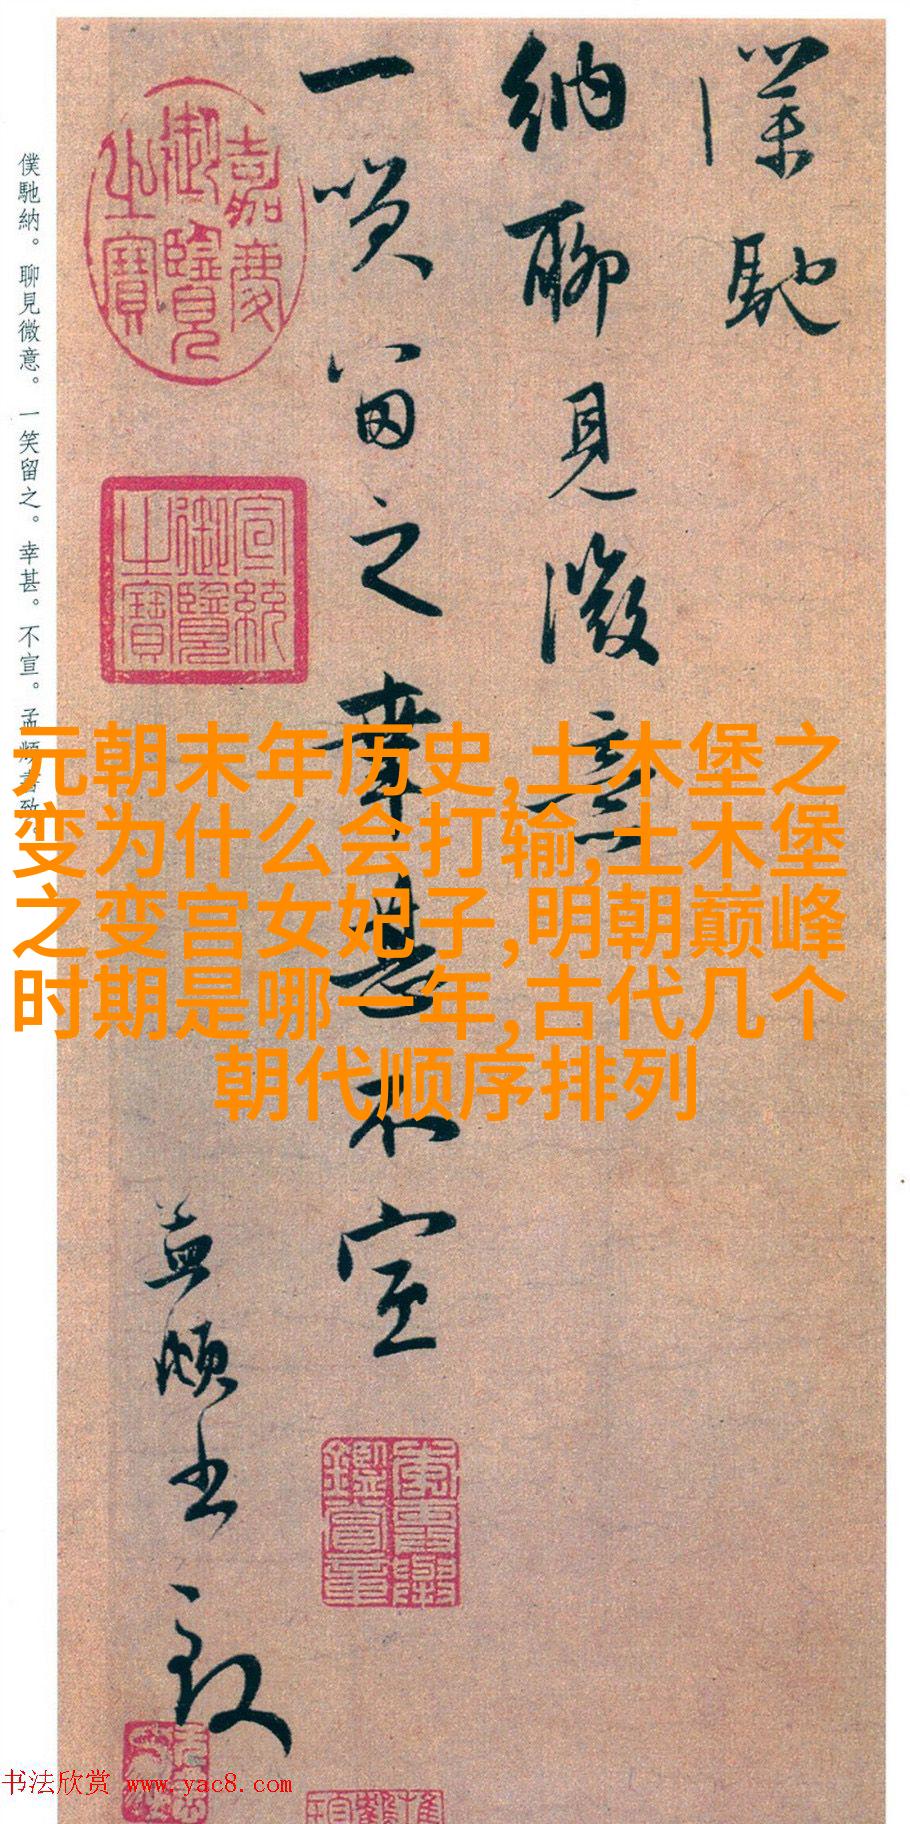 僕馳
納聊見微意
一笑留之幸甚不宣
孟頫書致
嘉慶御覽之寶
宣統御覽之寶
僕馳納。聊見微意。一笑留之。幸甚。不宣。孟頫書致。
元朝末年历史,土木堡之
变为什么会打输,土木堡
之变宫女妃子,明朝巅峰
时期是哪一年,古代几个
朝代顺序排列
书法欣赏 www.yac8.com